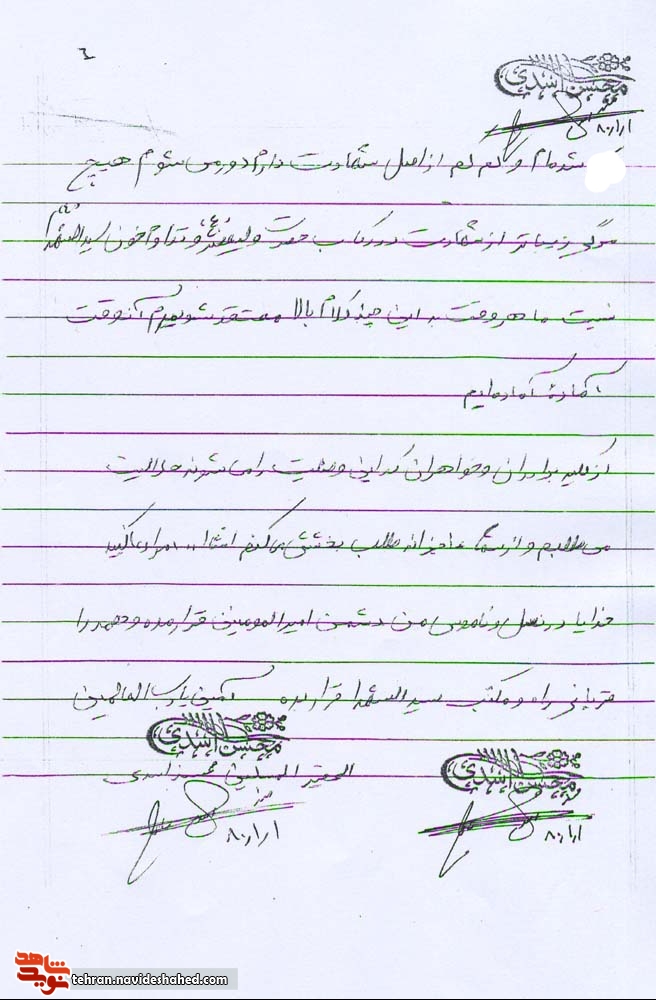 ۶
محسن اسدی
۸۰/۱/۱
شده‌ام و کم کم از اصل شهادت دارم دور می شوم هیچ
مرگی زیباتر از شهادت در رکاب حضرت ولیعصر (عج) و تداوم خون سیدالشهداء
نیست ما هر وقت به این چند کلام بالا معتقد شویم آنوقت
آماده آماده‌ایم
از کلیه برادران و خواهران که این وصیت را می شنوند حلالیت
می طلبم و از شما عاجزانه طلب بخشش می کنم انشاا... مرا دعا کنید
خدایا در نسل و ناموس من دشمن امیرالمومنین قرار مده و همه را
قربانی راه و مکتب سیدالشهدا قرار بده آمین یا رب العالمین
محسن اسدی
الحقیر المسلمین محسن اسدی
۸۰/۱/۱
محسن اسدی
۸۰/۱/۱
نوید شاهد
tehran.navideshahed.com